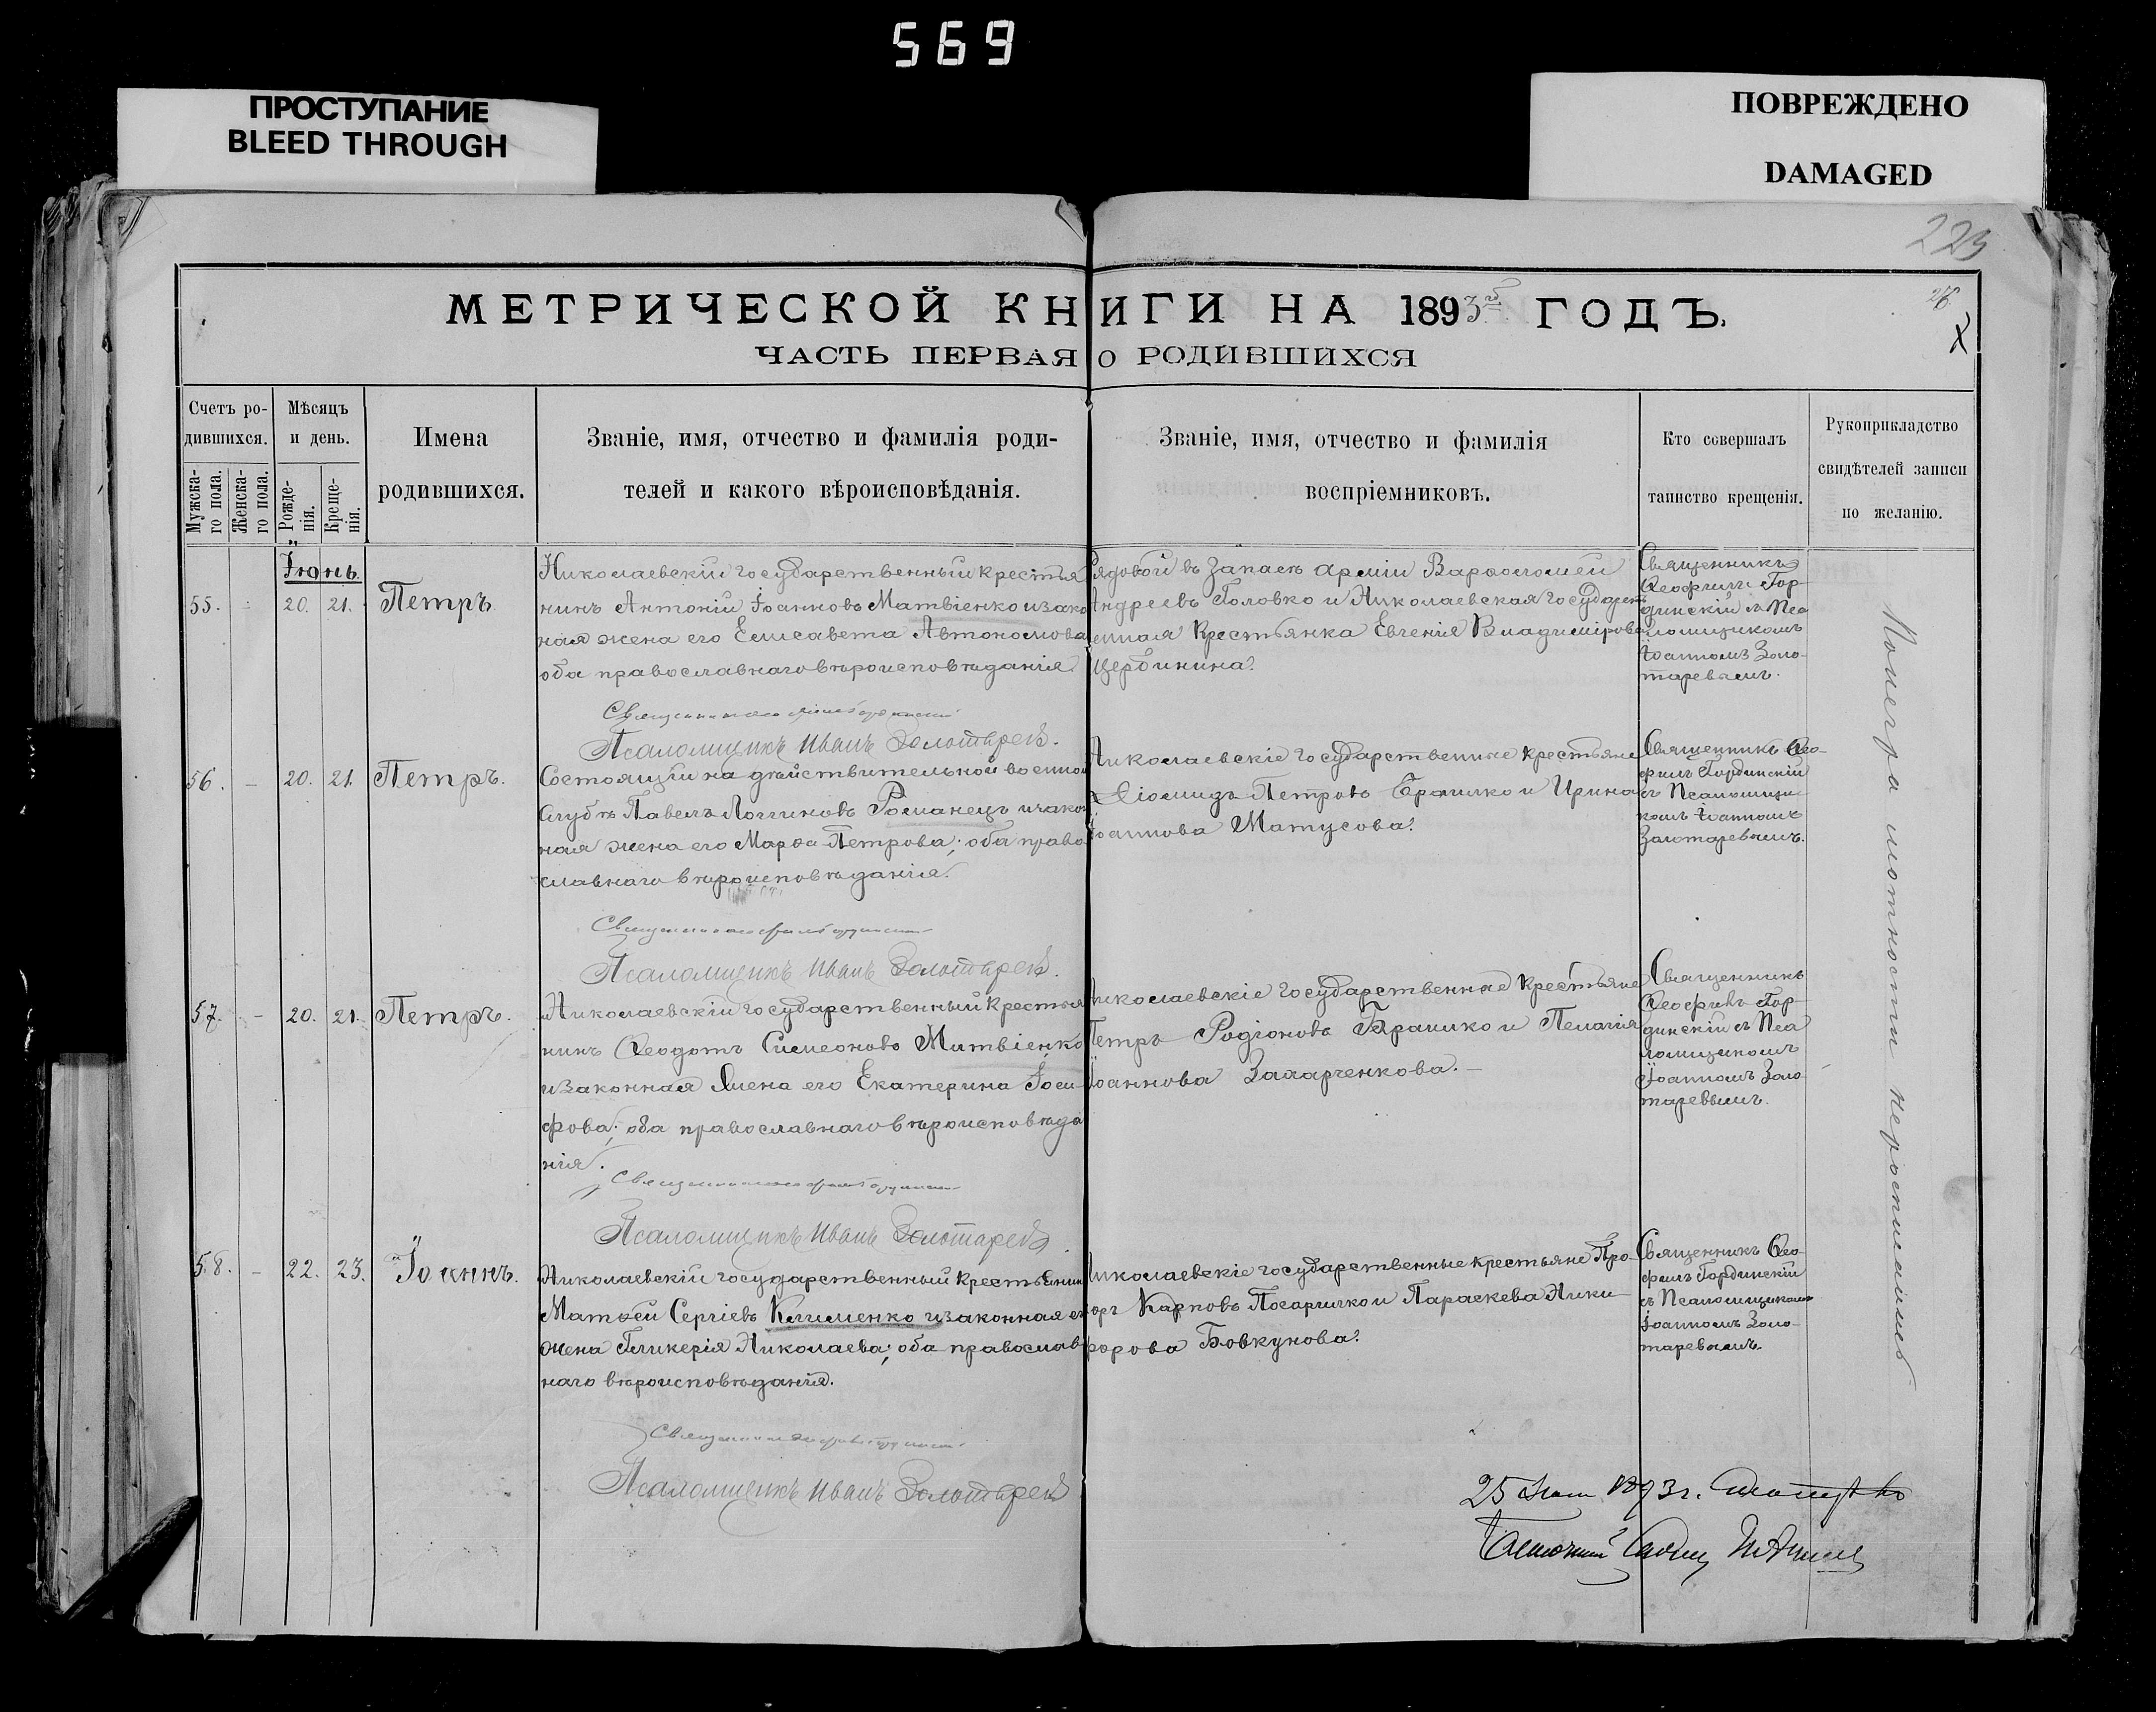 569
ПРОСТУПАНИЕ
BLEED THROUGH
ПОВРЕЖДЕНО
DAMAGED
223
26
МЕТРИЧЕСКОЙ КНИГИ НА 1893 ГОДЪ.
ЧАСТЬ ПЕРВАЯ О РОДИВШИХСЯ
Счетъ ро-
дившихся.
Мужска-
го пола.
Женска-
го пола.
Мѣсяцъ
и день.
Рожде-
нія.
Креще-
нія.
Имена
родившихся.
Званіе, имя, отчество и фамилія роди-
телей и какого вѣроисповѣданія.
Званіе, имя, отчество и фамилія
воспріемниковъ.
Кто совершалъ
таинство крещенія.
Рукоприкладство
свидѣтелей записи
по желанію.
Іюнь.
55. 20. 21. Петръ
Николаевскій государственный крестья
нинъ Антоній Іоанновъ Матвіенко и зако
ная жена его Елисавета Автономова
оба православнаго вѣроисповѣданія.
Рядовой въ запасѣ арміи Варѳоломей
Андреевъ Головко и Николаевская государст
венная крестьянка Евгенія Владимірова
Щербинина.
Священникъ
Ѳеофилъ Гор-
динскій съ Пса
ломщикомъ
Іоанномъ Золо-
таревымъ.
Псаломщикъ Иванъ Золотаревъ.
56. – 20. 21. Петръ.
Состоящій на дѣйствительной военной
службѣ Павелъ Логгиновъ Романецъ и закон
ная жена его Марѳа Петрова; оба право
славнаго вѣроисповѣданія.
Николаевскіе государственные крестьяне
Діомидъ Петровъ и Ирина
Іоаннова Матусова.
Священникъ Ѳео-
филъ Гординскій
съ Псаломщи-
комъ Іоанномъ
Золотаревымъ.
Псаломщикъ Иванъ Золотаревъ.
57. – 20. 21. Петръ.
Николаевскій государственный крестья
нинъ Ѳеодотъ Симеоновъ Матвіенко
и законная жена его Екатерина Іоси-
фова; оба православнаго вѣроисповѣда
нія.
Николаевскіе государственные крестьяне
Петръ Родіоновъ и Пелагія
Іоаннова Захарченкова. –
Священникъ
Ѳеофилъ Гор-
динскій съ Пса
ломщикомъ
Іоанномъ Золо
таревымъ.
Псаломщикъ Иванъ Золотаревъ.
58. – 22. 23. Іоаннъ.
Николаевскій государственный крестьянин
Матѳей Сергіевъ Клименко и законная ег
жена Гликерія Николаева; оба православ
наго вѣроисповѣданія.
Николаевскіе государственные крестьяне Про-
хоръ Карповъ и Параскева Ники-
форова Бовкунова.
Священникъ Ѳео-
филъ Гординскій
съ Псаломщикомъ
Іоанномъ Золо-
таревымъ.
Псаломщикъ Иванъ Золотаревъ
25 1893 г.